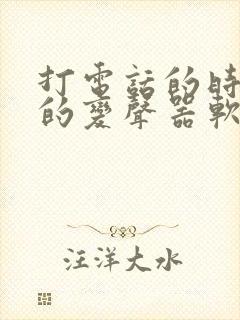 打電話的時
的變聲器軟
汪洋大水